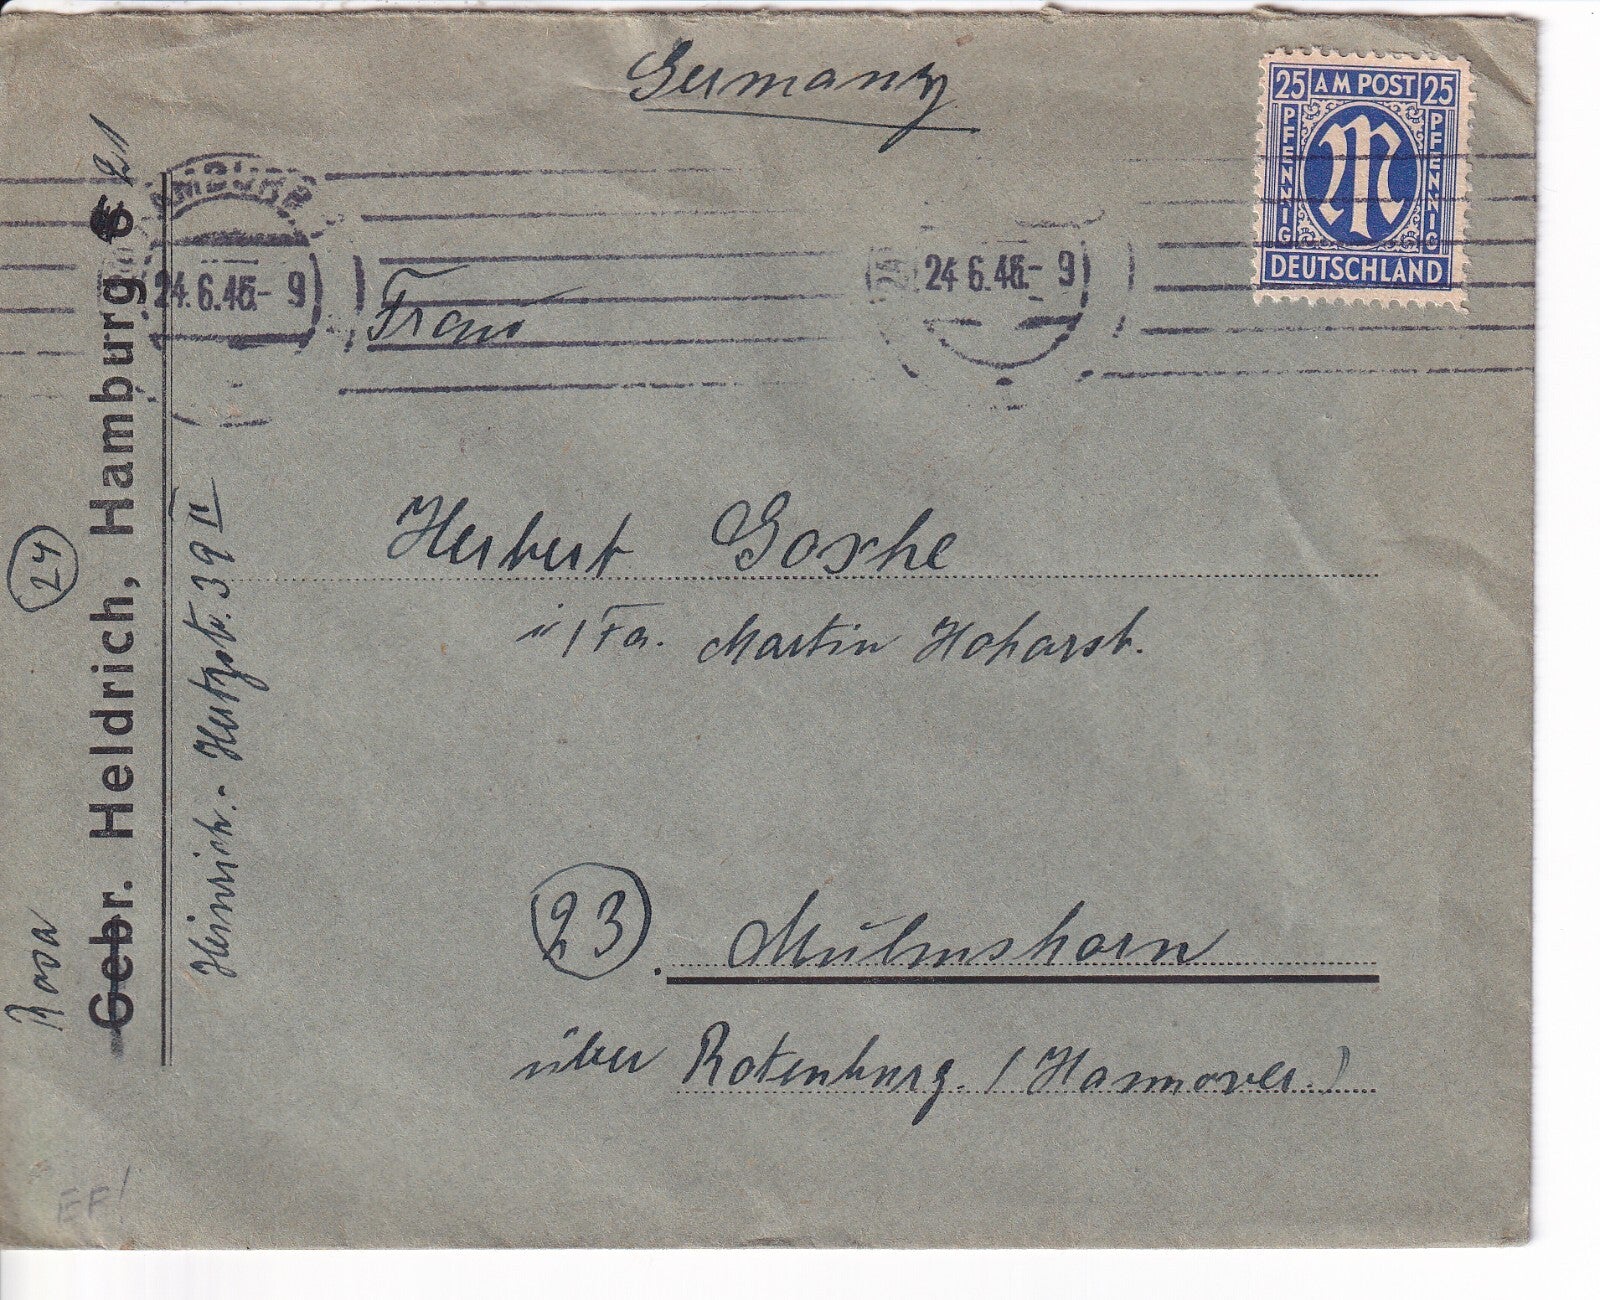 Germany
25 AM POST 25
PFENNIG
PFENNIG
DEUTSCHLAND
24.6.46.- 9
24.6.46.- 9
Frau
Herbert Goxhe
i/Fa. Martin Hoharst.
23. Mulmshorn
über Rotenburg. (Hannover.)
24
Rosa
Gebr. Heldrich, Hamburg 21
Heinrich.- Hertzstr. 39 II
EF!